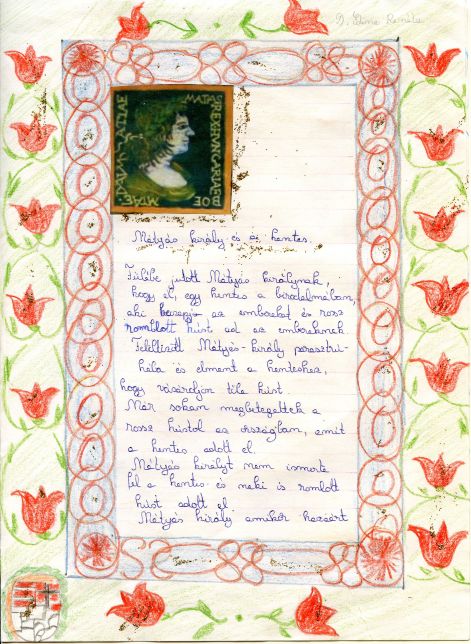 D. Réka
MATHIAS REX HVNGARIAE BOE
Mátyás király és a hentes.
Fülébe jutott Mátyás királynak,
hogy él, egy hentes a birodalmában,
aki becsapja az embereket és rossz
romlott húst ad az embereknek
Felöltözött Mátyás-király paraszt ru-
hába és elment a henteshez,
hogy vásároljon tőle húst.
Már sokan megbetegedtek a
rossz hústól az országban, amit
a hentes adott el.
Mátyás királyt nem ismerte
fel a hentes és neki is romlott
húst adott el.
Mátyás király amikor hazaért